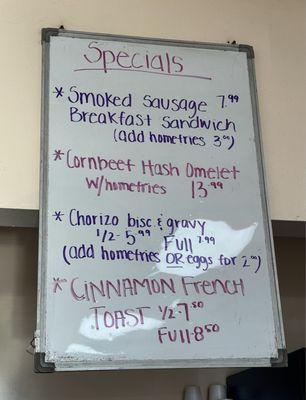 Specials
* Smoked Sausage 7.99
Breakfast Sandwich
(add homefries 3.00)
* Cornbeef Hash Omelet
W/homefries 13.99
* Chorizo bisc. & gravy
1/2-5.99 Full 7.99
(add homefries OR eggs for 2.00)
* CINNAMON French
TOAST 1/2-7.50
Full-8.50